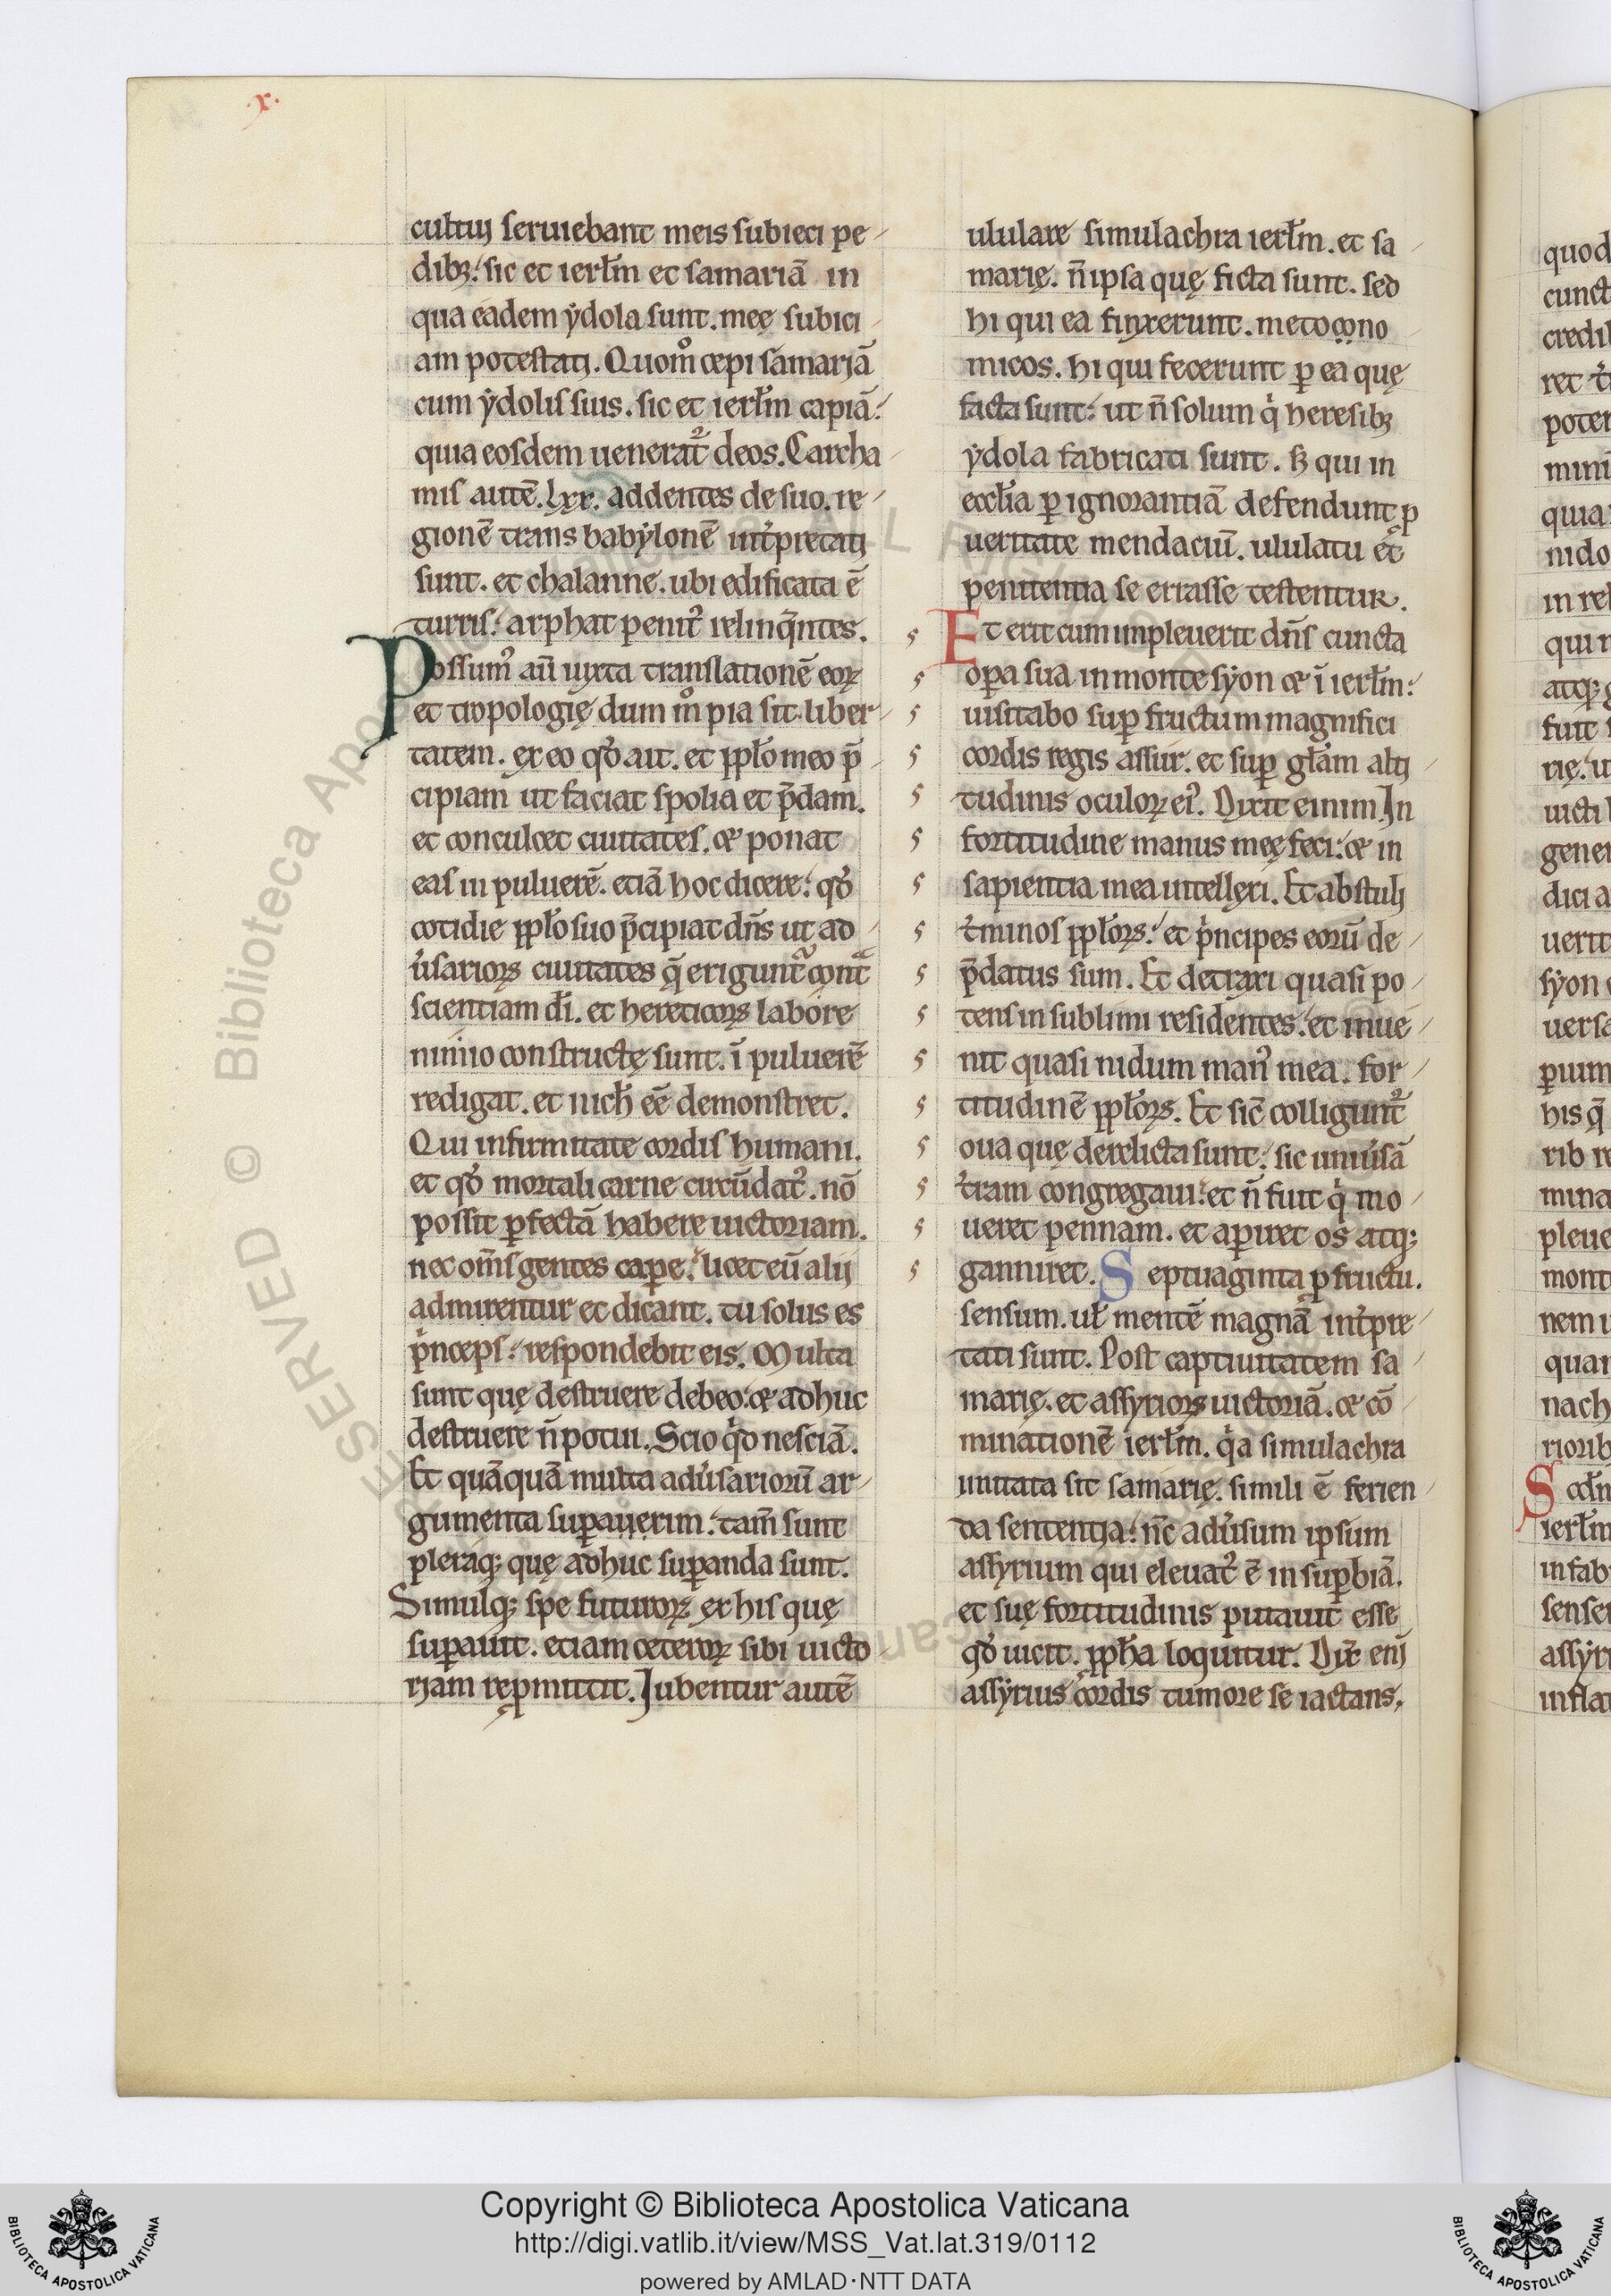 .x.
cultui seruiebant meis subieci pe-
dibꝫ. sic et ierłm et samariā in
qua eadem ẏdola sunt. meę subici-
am potestati. Quom̊ cepi samariā
cum ẏdolis suis. sic et ierłm capiā.
quia eosdem ueneratᷣ deos. Carcha-
mis autē. lxx. addentes de suo. re-
gionē trans babẏlonē int̓pretati
sunt. et chalanne. ubi edificata ē
turris. arphat penitꝰ relinq̄ntes.
Possumꝰ aū iuxta translationē eoꝝ
et tropologię dum m̊ pia sit liber-
tatem. ex eo qd̓ ait. et pp̄lo meo p̄-
cipiam ut faciat spolia et p̄dam.
et conculcet ciuitates. ⁊ ponat
eas in puluerē. etiā hoc dicere. qd̓
cotidie pp̄lo suo p̄cipiat dn̄s ut ad-
u̓sarioꝝ ciuitates q̄ eriguntᷣ contᷓ
scientiam dı̄. et hereticoꝝ labore
nimio constructę sunt. ī puluerē
redigat. et nich̄ ēē demonstret.
Qui infirmitate cordis humani.
et qd̓ mortali carne circūdatᷣ. nō
possit ꝑfectā habere uictoriam.
nec om̄s gentes caꝑe. licet eū alij
admirentur et dicant. tu solus es
pͥnceps. respondebit eis. Multa
sunt quę destruere debeo. ⁊ adhuc
destruere n̄ potui. Scio qͥd nesciā.
Et quāquā multa adu̓sariorū ar-
gumenta suꝑauerim. tam̄ sunt
pleraqꝫ quę adhuc suꝑanda sunt.
Simulqꝫ spe futuroꝝ ex his quę
suꝑauit. etiam ceteroꝝ sibi uicto
riam reꝓmittit. Iubentur autē
ululare simulachra ierłm. et sa-
marię. n̄ ipsa quę ficta sunt. sed
hi qui ea finxerunt. metocono
micos. hi qui fecerunt ꝑ ea quę
facta sunt. ut n̄ solum qͥ heresibꝫ
ẏdola fabricati sunt. sꝫ qui in
eccl̄ia ꝑ ignorantiā defendunt ꝓ
ueritate mendaciū. ululatu et
penitentia se errasse testentur.
Et erit cum impleuerit dn̄s cuncta
oꝑa sua in monte sẏon ⁊ ī ierłm.
uisitabo suꝑ fructum magnifici
cordis regis assur. et suꝑ głam alti-
tudinis oculoꝝ eiꝰ. Dixit einim. In
fortitudine manus meę feci. ⁊ in
sapientia mea intellexi. Et abstuli
t̓minos pp̄loꝝ. et pͥncipes eorū de-
p̄datus sum. Et detraxi quasi po-
tens in sublimi residentes. et inue-
nit quasi nidum manꝰ mea. for-
titudinē pp̄loꝝ. Et sic̄ colliguntᷣ
oua quę derelicta sunt. sic uniu̓sā
t̓ram congregaui. et n̄ fuit qͥ mo-
ueret pennam. et aꝑiret os atqꝫ
ganniret. Septuaginta ꝓ fructu.
sensum. ul̄ mentē magnā int̓pre-
tati sunt. Post captiuitatem sa-
marię. et assyrioꝝ uictoriā. ⁊ cō-
minationē ierłm. qͥa simulachra
imitata sit samarię. simili ē ferien-
da sententia. nc̄ adu̓sum ipsum
assyrium qui eleuatᷣ ē in suꝑbiā.
et suę fortitudinis putauit esse
qd̓ uicit. pp̄ha loquitur. Dix̄ enī
assẏrius cordis tumore se iactans.
Copyright © Biblioteca Apostolica Vaticana
http://digi.vatlib.it/view/MSS_Vat.lat.319/0112
powered by AMLAD·NTT DATA